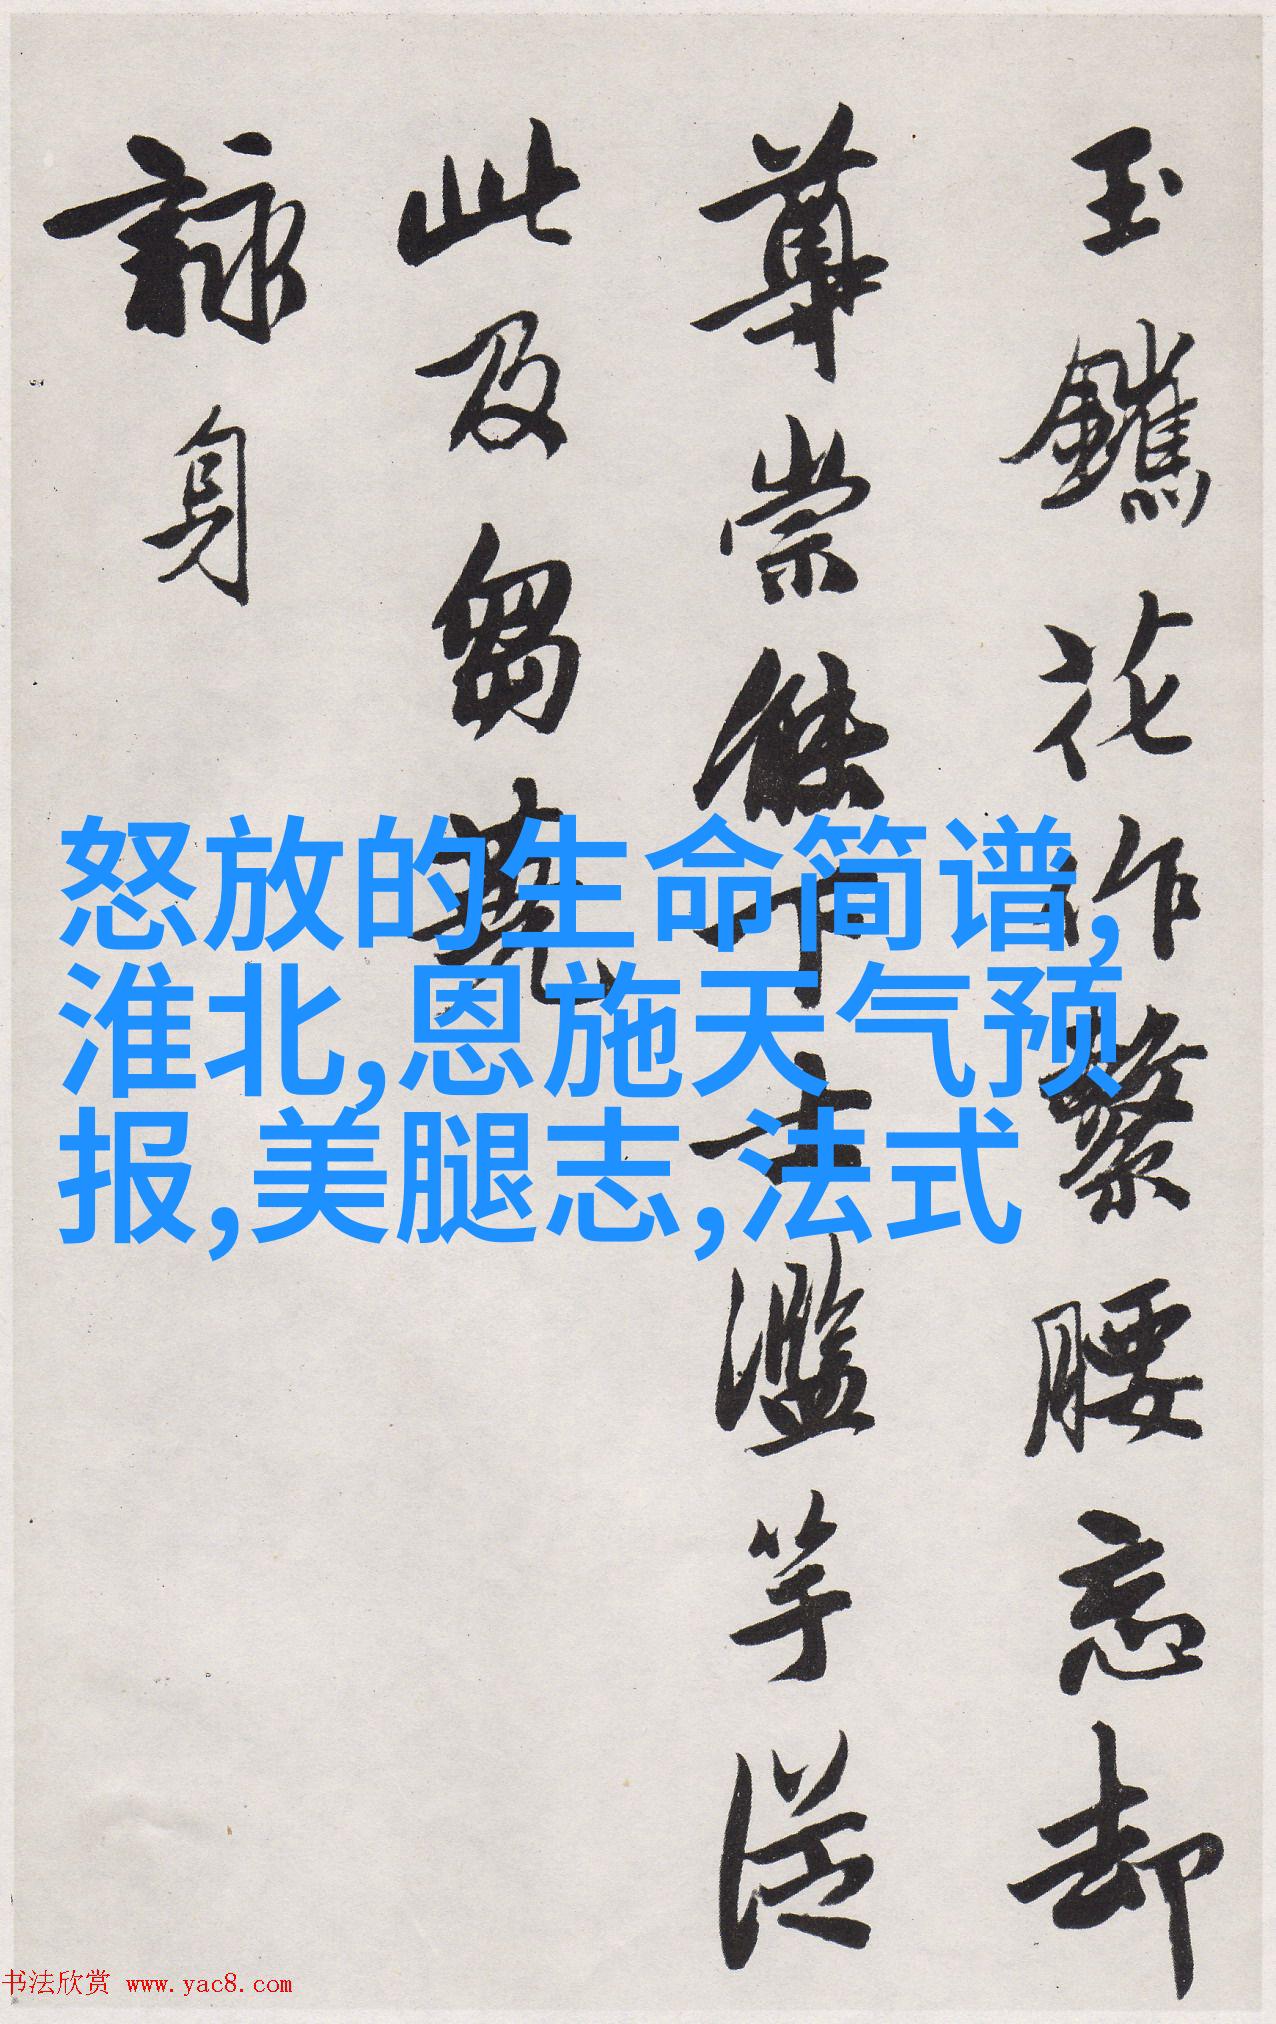 玉鑣花作繫腰忘却
萼崇傑下士濫竽從
此及芻蕘
詠身
怒放的生命简谱,
淮北,恩施天气预
报,美腿志,法式
书法欣赏 www.yac8.com